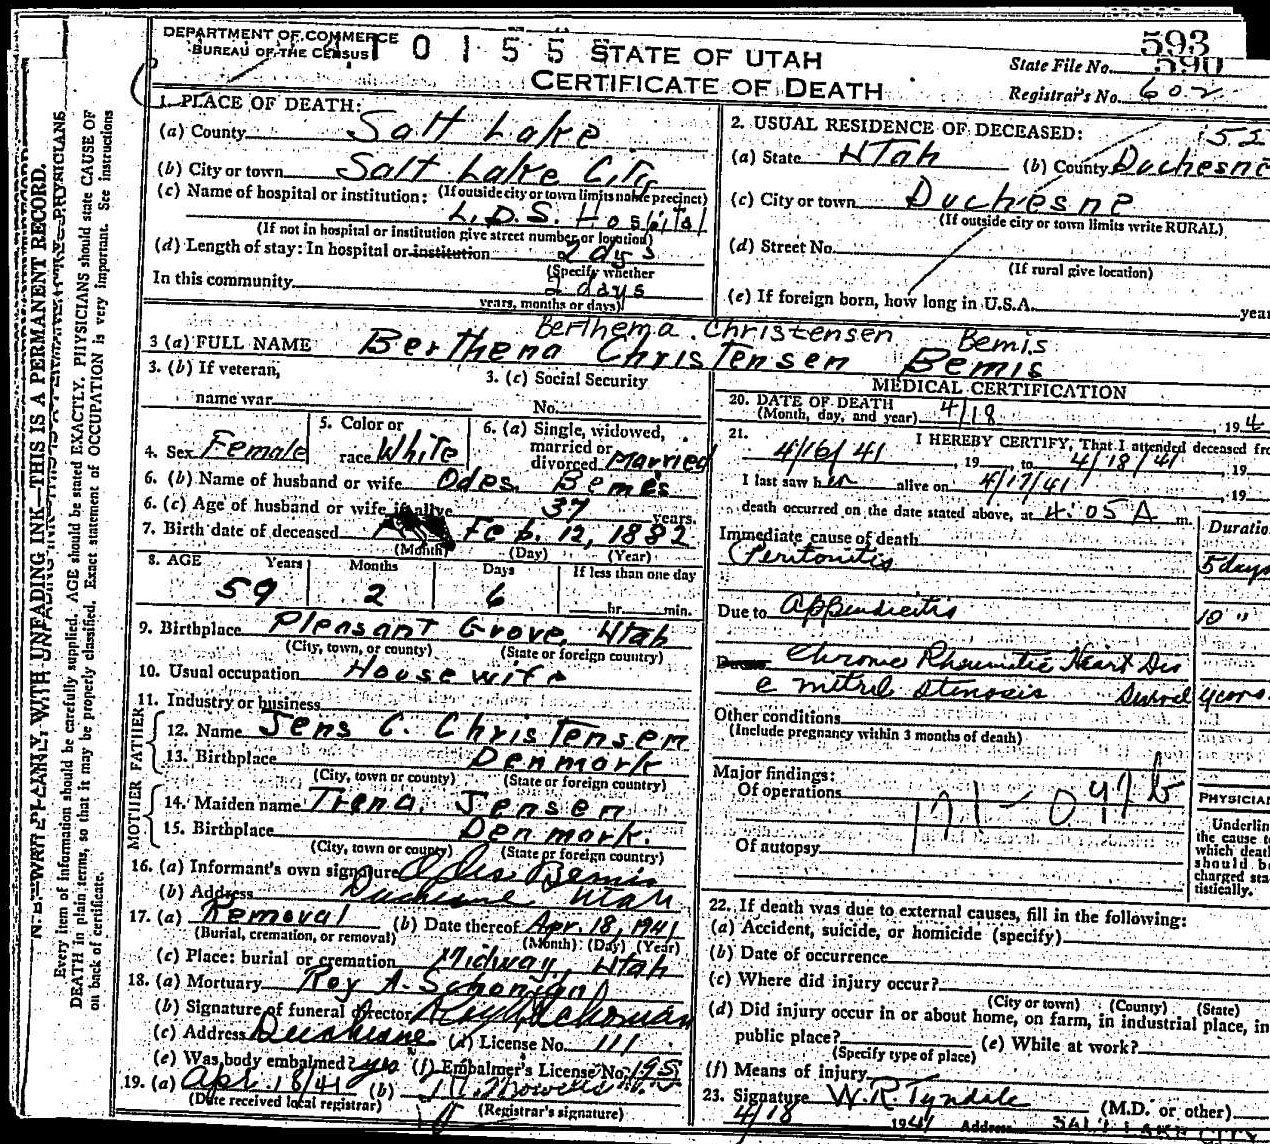 DEPARTMENT OF COMMERCE
BUREAU OF THE CENSUS
0 1 5 5
STATE OF UTAH
CERTIFICATE OF DEATH
593
590
State File No.
Registrar's No. 602
1. PLACE OF DEATH:
(a) County Salt Lake
(b) City or town Salt Lake City
(If outside city or town limits name precinct)
(c) Name of hospital or institution:
L.D.S. Hospital
(If not in hospital or institution give street number or location)
(d) Length of stay: In hospital or institution 2 dys
(Specify whether
In this community 2 days
years, months or days)
2. USUAL RESIDENCE OF DECEASED:
52
(a) State Utah (b) County Duchesne
(c) City or town Duchesne
(If outside city or town limits write RURAL)
(d) Street No.
(If rural give location)
(e) If foreign born, how long in U.S.A. year
Berthema Christensen Bemis
3 (a) FULL NAME Berthena Christensen Bemis
3. (b) If veteran,
name war
3. (c) Social Security
No.
4. Sex Female
5. Color or
race White
6. (a) Single, widowed,
married or
divorced Married
6. (b) Name of husband or wife Odes Bemis
6. (c) Age of husband or wife if alive 37 years.
7. Birth date of deceased Feb. 12, 1882
(Month) (Day) (Year)
8. AGE Years Months Days If less than one day
59 2 6 hr. min.
9. Birthplace Pleasant Grove, Utah
(City, town, or county) (State or foreign country)
10. Usual occupation Housewife
11. Industry or business
FATHER
12. Name Jens C. Christensen
13. Birthplace Denmark
(City, town or county) (State or foreign country)
MOTHER
14. Maiden name Trena Jensen
15. Birthplace Denmark.
(City, town or county) (State or foreign country)
16. (a) Informant's own signature Odes Bemis
(b) Address Duchesne Utah
17. (a) Removal (b) Date thereof Apr. 18, 1941
(Burial, cremation, or removal) (Month) (Day) (Year)
(c) Place: burial or cremation Midway, Utah
18. (a) Mortuary Roy A. Schonian
(b) Signature of funeral director Roy A Schonian
(c) Address Duchesne (d) License No. 111
(e) Was body embalmed? yes (f) Embalmer's License No. 195
19. (a) Apr. 18/41 (b)
(Date received local registrar) (Registrar's signature)
MEDICAL CERTIFICATION
20. DATE OF DEATH
(Month, day, and year) 4/18, 194
21. I HEREBY CERTIFY, That I attended deceased fro
4/16/41, 19 to 4/18/41, 19
I last saw her alive on 4/17/41, 19
death occurred on the date stated above, at 4:05 A m.
Duratio
Immediate cause of death
Peritonitis 5 days
Due to Appendicitis 10 "
Chronic Rheumatic Heart Dis
c mitral stenosis years
Other conditions
(Include pregnancy within 3 months of death)
Major findings:
Of operations
Of autopsy
PHYSICIAN
Underlin
the cause t
which deat
should b
charged sta
tistically.
22. If death was due to external causes, fill in the following:
(a) Accident, suicide, or homicide (specify)
(b) Date of occurrence
(c) Where did injury occur?
(City or town) (County) (State)
(d) Did injury occur in or about home, on farm, in industrial place, in
public place? (e) While at work?
(Specify type of place)
(f) Means of injury
23. Signature W.R. Tyndale (M.D. or other)
4/18 1941 Address SALT LAKE CITY
N.B.—WRITE PLAINLY, WITH UNFADING INK—THIS IS A PERMANENT RECORD.
Every item of information should be carefully supplied. AGE should be stated EXACTLY. PHYSICIANS should state CAUSE OF
DEATH in plain terms, so that it may be properly classified. Exact statement of OCCUPATION is very important. See instructions
on back of certificate.